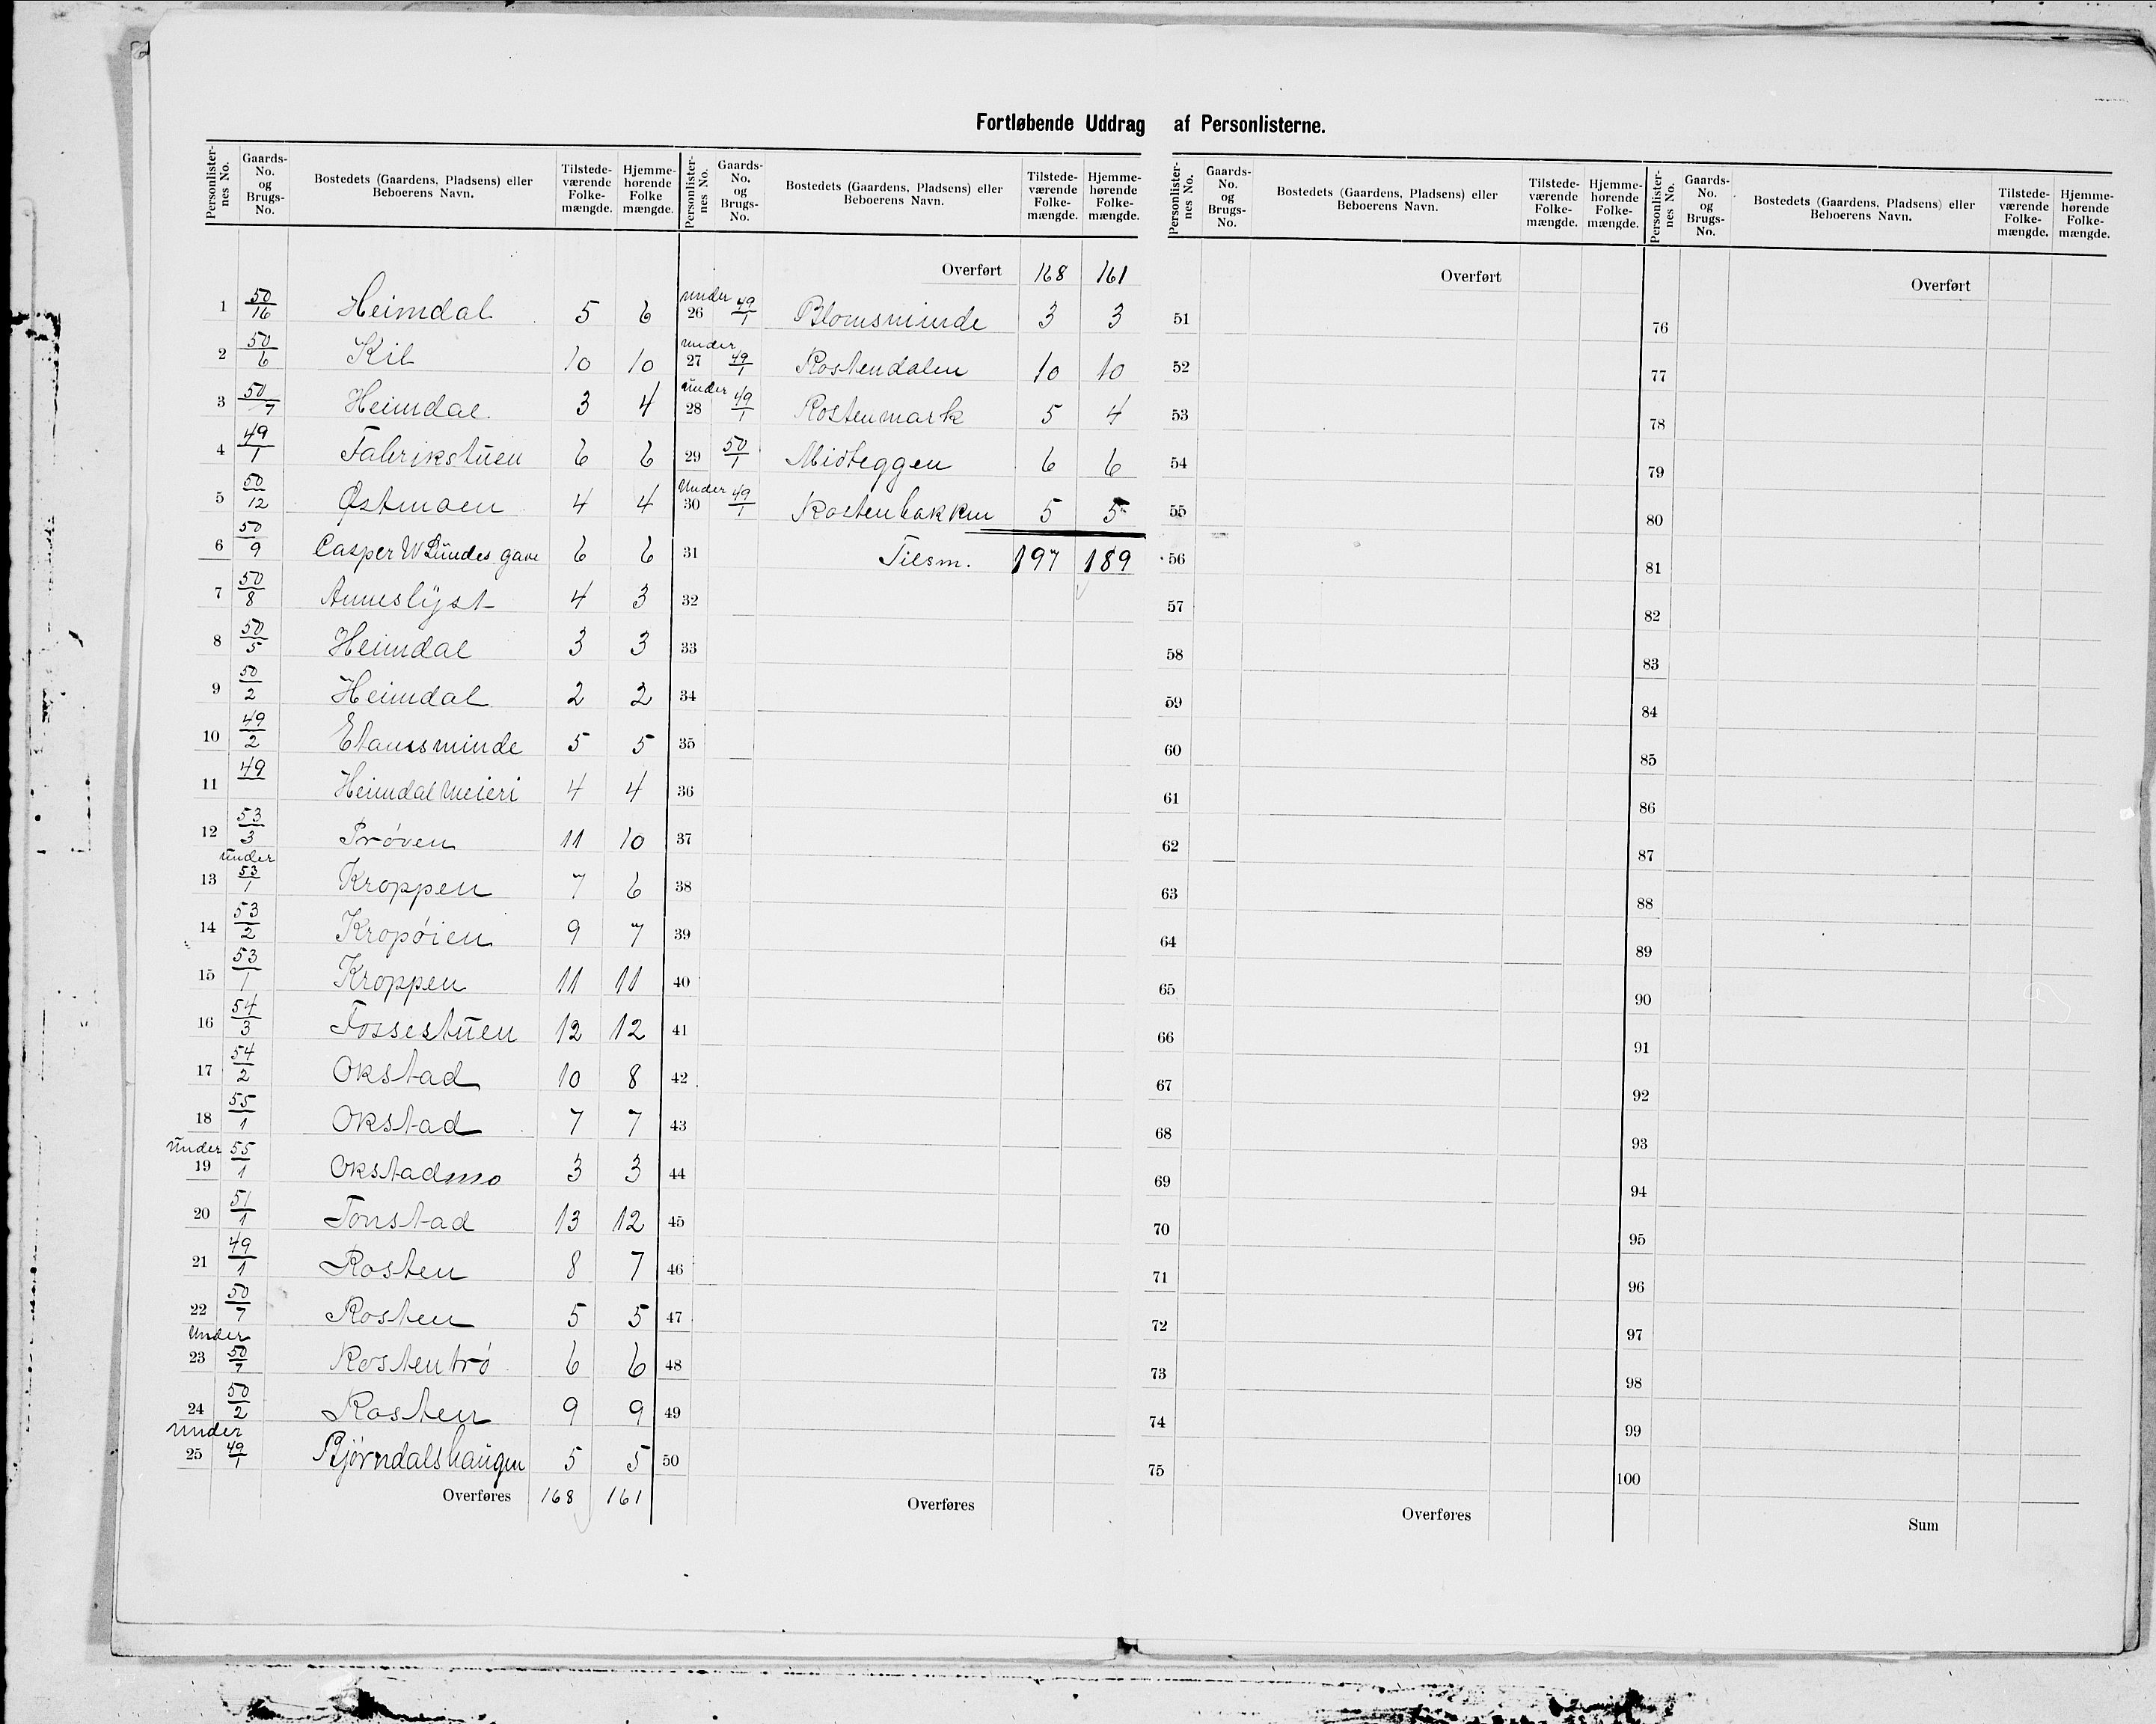 Fortløbende Uddrag af Personlisterne.
Personlisternes No. Gaards-No. og Brugs-No. Bostedets (Gaardens, Pladsens) eller Beboerens Navn. Tilstedeværende Folkemængde. Hjemmehørende Folkemængde.
1 50/16 Heimdal 5 6
2 50/6 Kil 10 10
3 50/7 Heimdal 3 4
4 49/1 Fabrikstuen 6 6
5 50/12 Østmoen 4 4
6 50/9 Casper W Lundes gave 6 6
7 50/8 Anneslyst 4 3
8 50/5 Heimdal 3 3
9 50/2 Heimdal 2 2
10 49/2 Etaussminde 5 5
11 49 Heimdal Meieri 4 4
12 53/3 Prøven 11 10
13 under 53/1 Kroppen 7 6
14 53/2 Kropøien 9 7
15 53/1 Kroppen 11 11
16 54/3 Fossestuen 12 12
17 54/2 Okstad 10 8
18 55/1 Okstad 7 7
under 19 55/1 Okstadmo 3 3
20 51/1 Tonstad 13 12
21 49/1 Rosten 8 7
22 50/7 Rosten 5 5
Under 23 50/7 Rostentrø 6 6
24 50/2 Rosten 9 9
Under 25 49/1 Bjørndalshaugen 5 5
Overføres 168 161
Personlisternes No. Gaards-No. og Brugs-No. Bostedets (Gaardens, Pladsens) eller Beboerens Navn. Tilstedeværende Folkemængde. Hjemmehørende Folkemængde.
Overført 168 161
under 26 49/1 Blomsminde 3 3
under 27 49/1 Rostendalen 10 10
under 28 49/1 Rostenmark 5 4
29 50/1 Midteggen 6 6
Under 30 49/1 Rostenbakken 5 5
31 Tilsm. 197 189
32
33
34
35
36
37
38
39
40
41
42
43
44
45
46
47
48
49
50
Overføres
Personlisternes No. Gaards-No. og Brugs-No. Bostedets (Gaardens, Pladsens) eller Beboerens Navn. Tilstedeværende Folkemængde. Hjemmehørende Folkemængde.
Overført
51
52
53
54
55
56
57
58
59
60
61
62
63
64
65
66
67
68
69
70
71
72
73
74
75
Overføres
Personlisternes No. Gaards-No. og Brugs-No. Bostedets (Gaardens, Pladsens) eller Beboerens Navn. Tilstedeværende Folkemængde. Hjemmehørende Folkemængde.
Overført
76
77
78
79
80
81
82
83
84
85
86
87
88
89
90
91
92
93
94
95
96
97
98
99
100
Sum